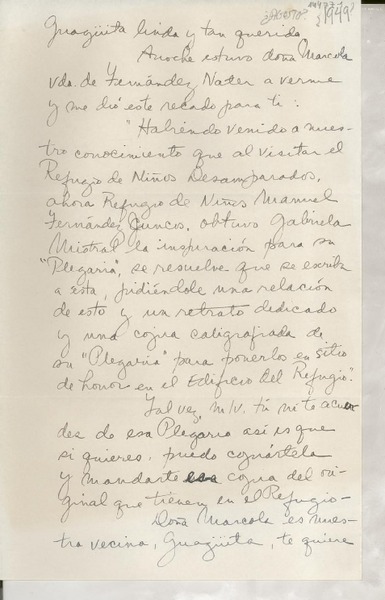 ¿Agosto? ¿1949?
Guagüita linda y tan querida,
Anoche estuvo doña Marcola
vda. de Fernández Nater a verme
y me dió este recado para ti:
"Habiendo venido a nues-
tro conocimiento que al visitar el
Refugio de Niños Desamparados,
ahora Refugio de Niños Manuel
Fernández Juncos, obtuvo Gabriela
Mistral la inspiración para su
"Plegaria", se resuelve que se escriba
a ésta, pidiéndole una relación
de esto y un retrato dedicado
y una copia caligrafiada de
su "Plegaria" para ponerlos en sitio
de honor en el Edificio del Refugio".
Tal vez, m/v. tú ni te acuer
des de esa Plegaria así es que
si quieres, puedo copiártela
y mandarte copia del ori-
ginal que tienen en el Refugio-
Doña Marcola es nues-
tra vecina, Guagüita, te quiere